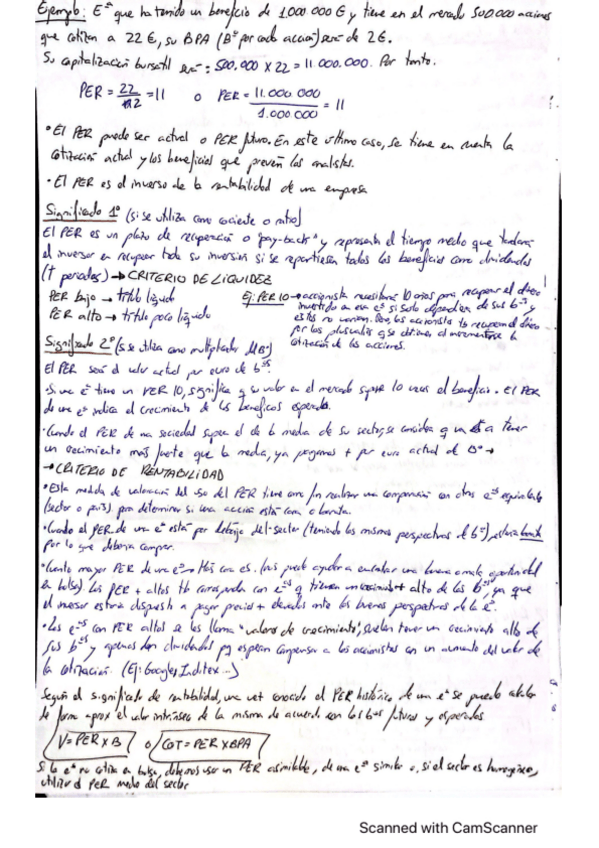 Ejemplo: Eª que ha tenido un beneficio de 1.000.000 € y tiene en el mercado 500.000 acciones
que cotizan a 22 €, su BPA (Bº por cada acción) será de 2€.
Su capitalización bursátil será: 500.000 x 22 = 11.000.000. Por tanto:
PER = 22/2 = 11 o PER = 11.000.000/1.000.000 = 11
• El PER puede ser actual o PER futuro. En este último caso, se tiene en cuenta la
cotización actual y los beneficios que prevén los analistas.
• El PER es el inverso de la rentabilidad de una empresa
Significado 1º (si se utiliza como cociente o ratio)
El PER es un plazo de recuperación o "pay-back" y representa el tiempo medio que tardará
el inversor en recuperar toda su inversión si se repartiesen todos los beneficios como dividendos
(t periodos) → CRITERIO DE LIQUIDEZ
PER bajo → título líquido
PER alto → título poco líquido
Ej: PER 10 → accionista necesitará 10 años para recuperar el dinero
invertido en esa eª si solo dependiera de sus bºs y
estos no varían. Pero, los accionistas tb recuperan el dinero
por las plusvalías q se obtienen al incrementarse la
cotización de las acciones.
Significado 2º (si se utiliza como multiplicador del Bº)
El PER será el valor actual por euro de bºs.
• Si una eª tiene un PER 10, significa q su valor en el mercado supone 10 veces el beneficio. El PER
de una eª indica el crecimiento de los beneficios esperado.
• Cuando el PER de una sociedad supera el de la media de su sector, se considera q va a tener
un crecimiento más fuerte que la media, ya pagamos + por euro actual de Bº →
→ CRITERIO DE RENTABILIDAD
• Esta medida de valoración del uso del PER tiene como fin realizar una comparación con otras eªs equivalentes
(sector o país) para determinar si una acción está cara o barata.
• Cuando el PER de una eª está por debajo del sector (teniendo las mismas perspectivas de bº), estará barata
por lo que debería comprar.
• Cuanto mayor PER de una eª → Más cara es. (nos puede ayudar a encontrar una buena o mala oportunidad
en bolsa) Los PER + altos tb corresponden con eªs q tienen un crecimiento + alto de los bºs, ya que
el inversor estaría dispuesto a pagar precios + elevados ante las buenas perspectivas de la eª.
• Las eªs con PER altos se les llama "valores de crecimiento", suelen tener un crecimiento alto de
sus bºs y apenas dan dividendos pq esperan compensar a los accionistas con un aumento del valor de
la cotización. (Ej: Google, Inditex...)
Según el significado de rentabilidad, una vez conocido el PER histórico de una eª se puede calcular
de forma aprox el valor intrínseco de la misma de acuerdo con los bºs futuros y esperados
V = PER x B o COT = PER x BPA
Si la eª no cotiza en bolsa, debemos usar un PER asimilable, de una eª similar o, si el sector es homogéneo,
utilizar el PER medio del sector
Scanned with CamScanner